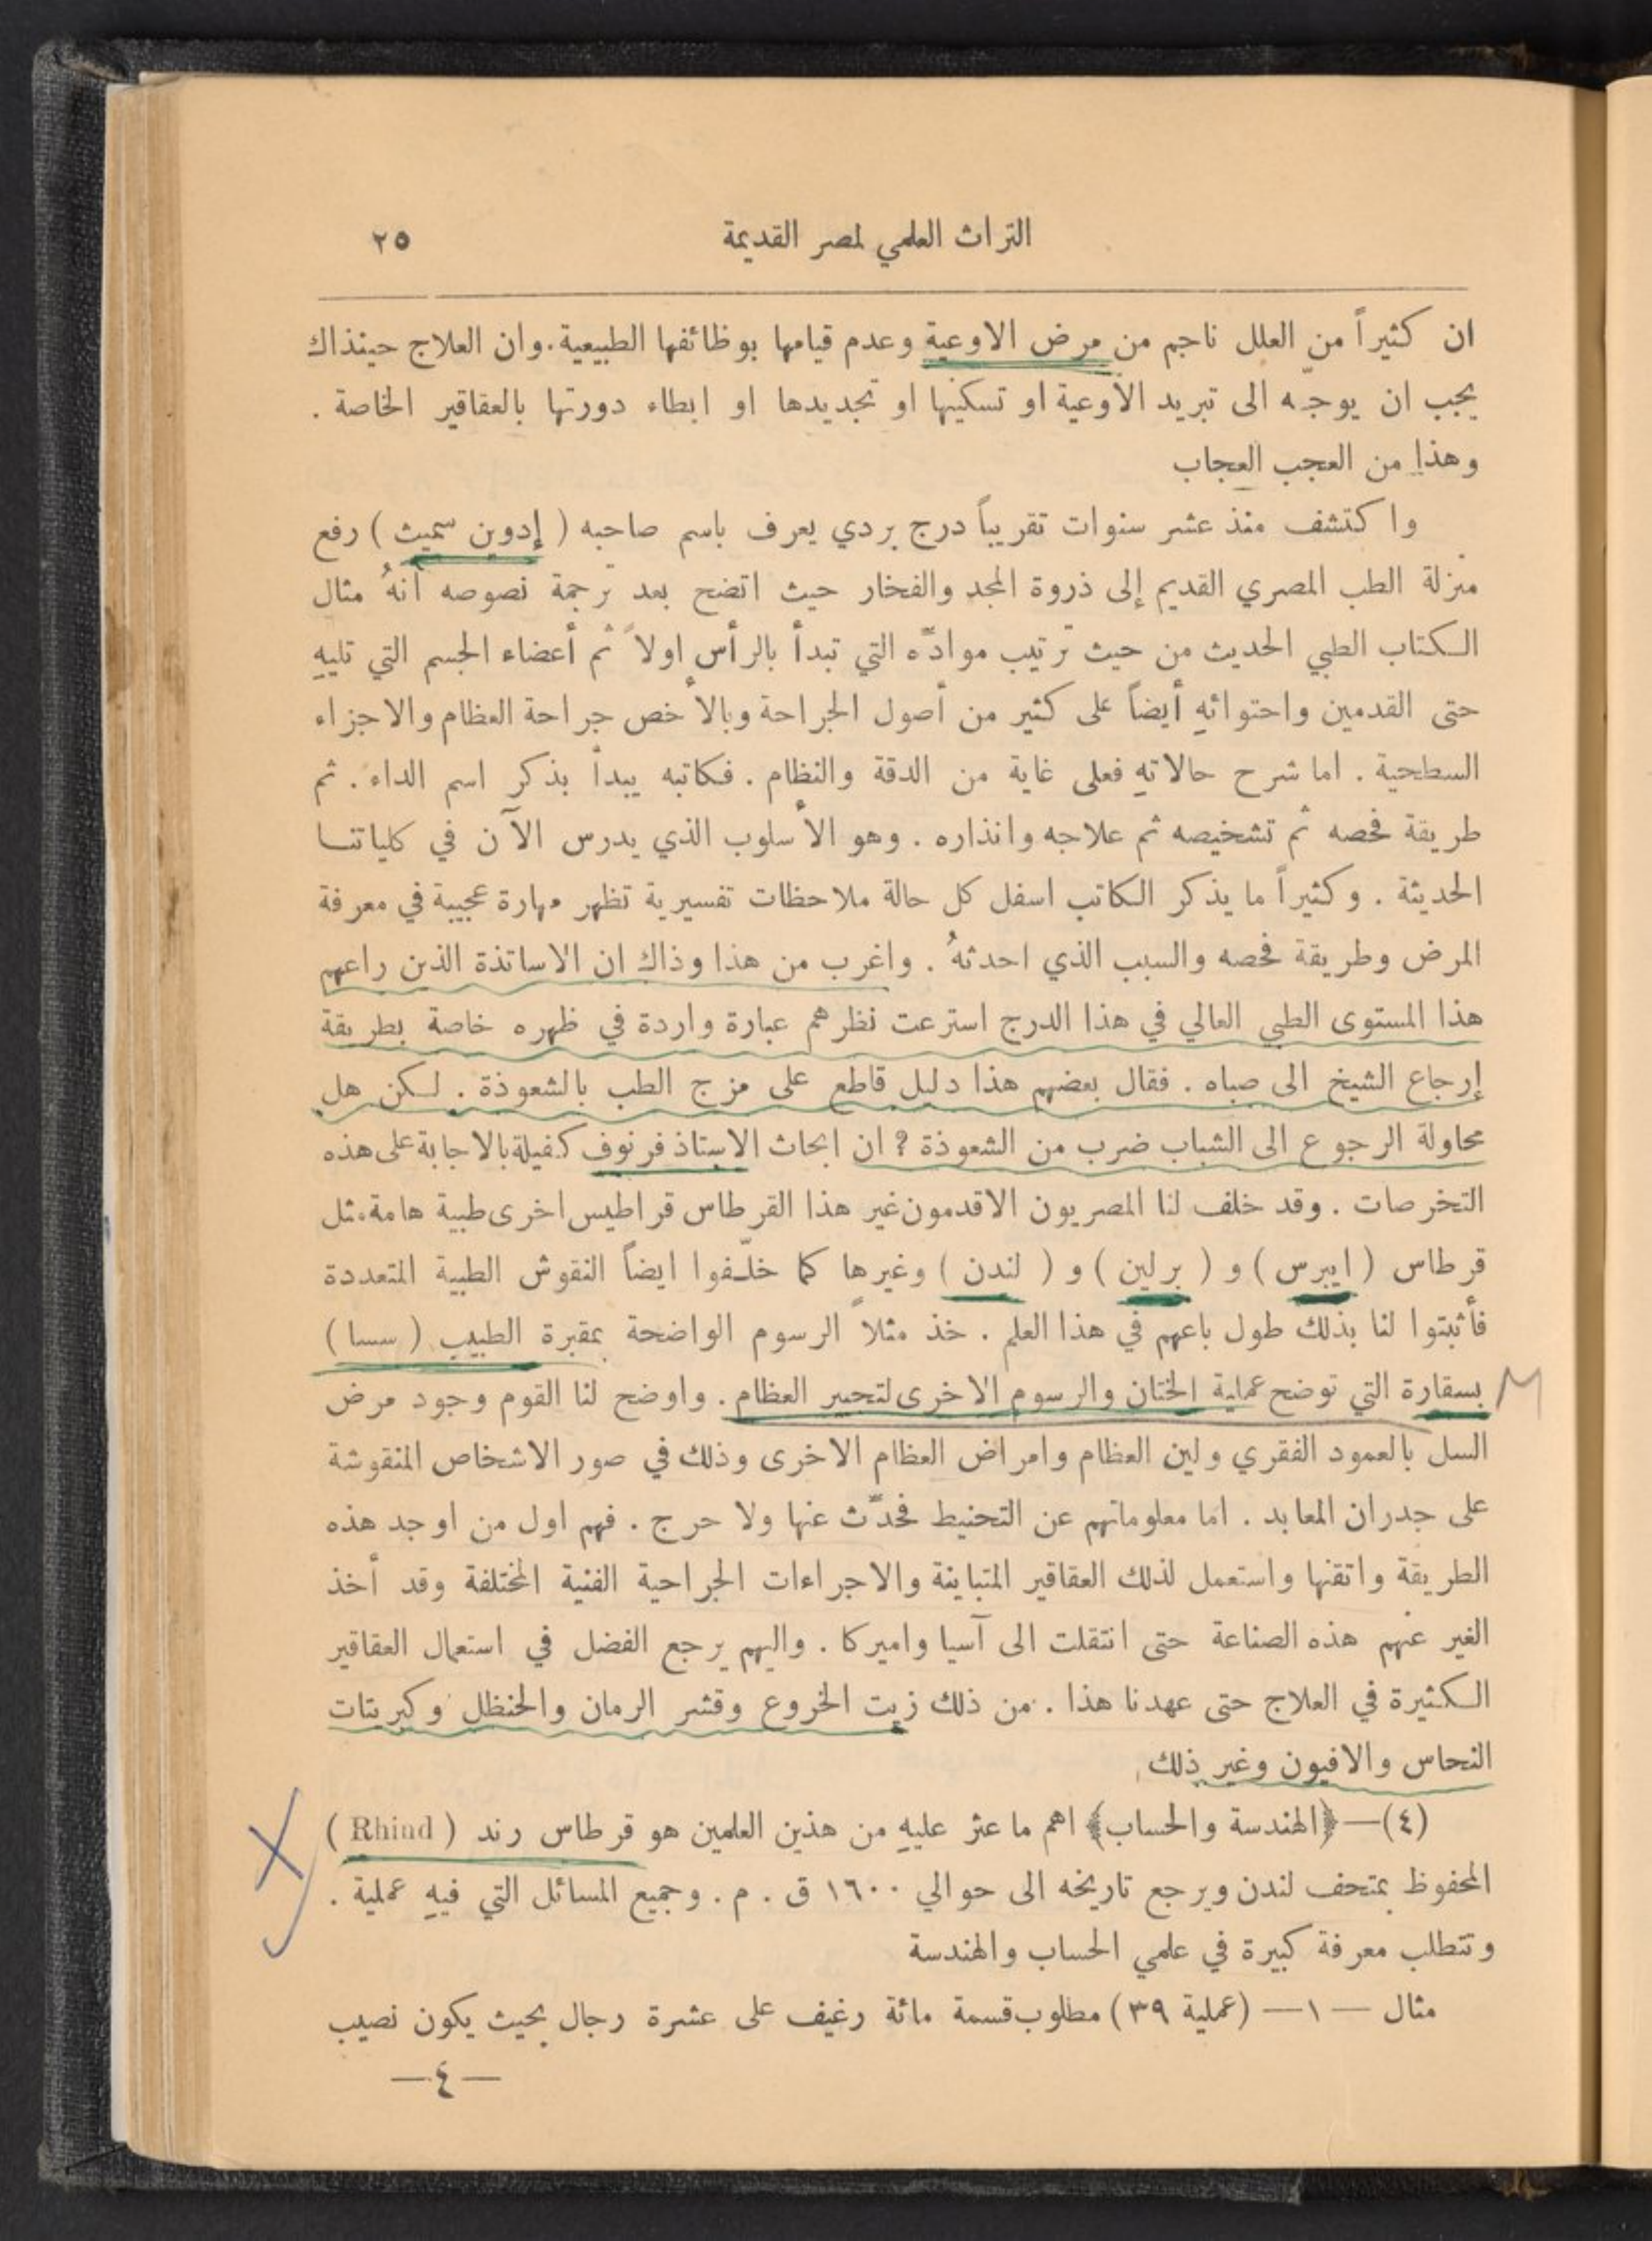 التراث العلمي لمصر القديمة ٢٥
ان كثيراً من العلل ناجم من مرض الاوعية وعدم قيامها بوظائفها الطبيعية. وان العلاج حينذاك
يجب ان يوجّه الى تبريد الأوعية او تسكينها او تجديدها او ابطاء دورتها بالعقاقير الخاصة .
وهذا من العجب العجاب
واكتشف منذ عشر سنوات تقريباً درج بردي يعرف باسم صاحبه ( إدوين سميث ) رفع
منزلة الطب المصري القديم إلى ذروة المجد والفخار حيث اتضح بعد ترجمة نصوصه أنهُ مثال
الكتاب الطبي الحديث من حيث ترتيب موادّه التي تبدأ بالرأس اولاً ثم أعضاء الجسم التي تليهِ
حتى القدمين واحتوائهِ أيضاً على كثير من أصول الجراحة وبالأخص جراحة العظام والاجزاء
السطحية . اما شرح حالاتهِ فعلى غاية من الدقة والنظام . فكاتبه يبدأ بذكر اسم الداء . ثم
طريقة فحصه ثم تشخيصه ثم علاجه وانذاره . وهو الأسلوب الذي يدرس الآن في كلياتنا
الحديثة . وكثيراً ما يذكر الكاتب اسفل كل حالة ملاحظات تفسيرية تظهر مهارة عجيبة في معرفة
المرض وطريقة فحصه والسبب الذي احدثهُ . واغرب من هذا وذاك ان الاساتذة الذين راعهم
هذا المستوى الطبي العالي في هذا الدرج استرعت نظرهم عبارة واردة في ظهره خاصة بطريقة
إرجاع الشيخ الى صباه . فقال بعضهم هذا دليل قاطع على مزج الطب بالشعوذة . لكن هل
محاولة الرجوع الى الشباب ضرب من الشعوذة ? ان ابحاث الاستاذ فرنوف كفيلة بالاجابة على هذه
التخرصات . وقد خلف لنا المصريون الاقدمون غير هذا القرطاس قراطيس اخرى طبية هامة مثل
قرطاس ( ايبرس ) و ( برلين ) و ( لندن ) وغيرها كما خلّفوا ايضاً النقوش الطبية المتعددة
فأثبتوا لنا بذلك طول باعهم في هذا العلم . خذ مثلاً الرسوم الواضحة بمقبرة الطبيب ( سسا )
بسقارة التي توضح عملية الختان والرسوم الاخرى لتجبير العظام . واوضح لنا القوم وجود مرض
السل بالعمود الفقري ولين العظام وامراض العظام الاخرى وذلك في صور الاشخاص المنقوشة
على جدران المعابد . اما معلوماتهم عن التحنيط فحدّث عنها ولا حرج . فهم اول من اوجد هذه
الطريقة واتقنها واستعمل لذلك العقاقير المتباينة والاجراءات الجراحية الفنية المختلفة وقد أخذ
الغير عنهم هذه الصناعة حتى انتقلت الى آسيا واميركا . واليهم يرجع الفضل في استعمال العقاقير
الكثيرة في العلاج حتى عهدنا هذا . من ذلك زيت الخروع وقشر الرمان والحنظل وكبريتات
النحاس والافيون وغير ذلك
(٤)—﴿الهندسة والحساب﴾ اهم ما عثر عليهِ من هذين العلمين هو قرطاس رند ( Rhind )
المحفوظ بمتحف لندن ويرجع تاريخه الى حوالي ١٦٠٠ ق . م . وجميع المسائل التي فيهِ عملية .
وتتطلب معرفة كبيرة في علمي الحساب والهندسة
مثال — ١ — (عملية ٣٩) مطلوب قسمة مائة رغيف على عشرة رجال بحيث يكون نصيب
—٤—